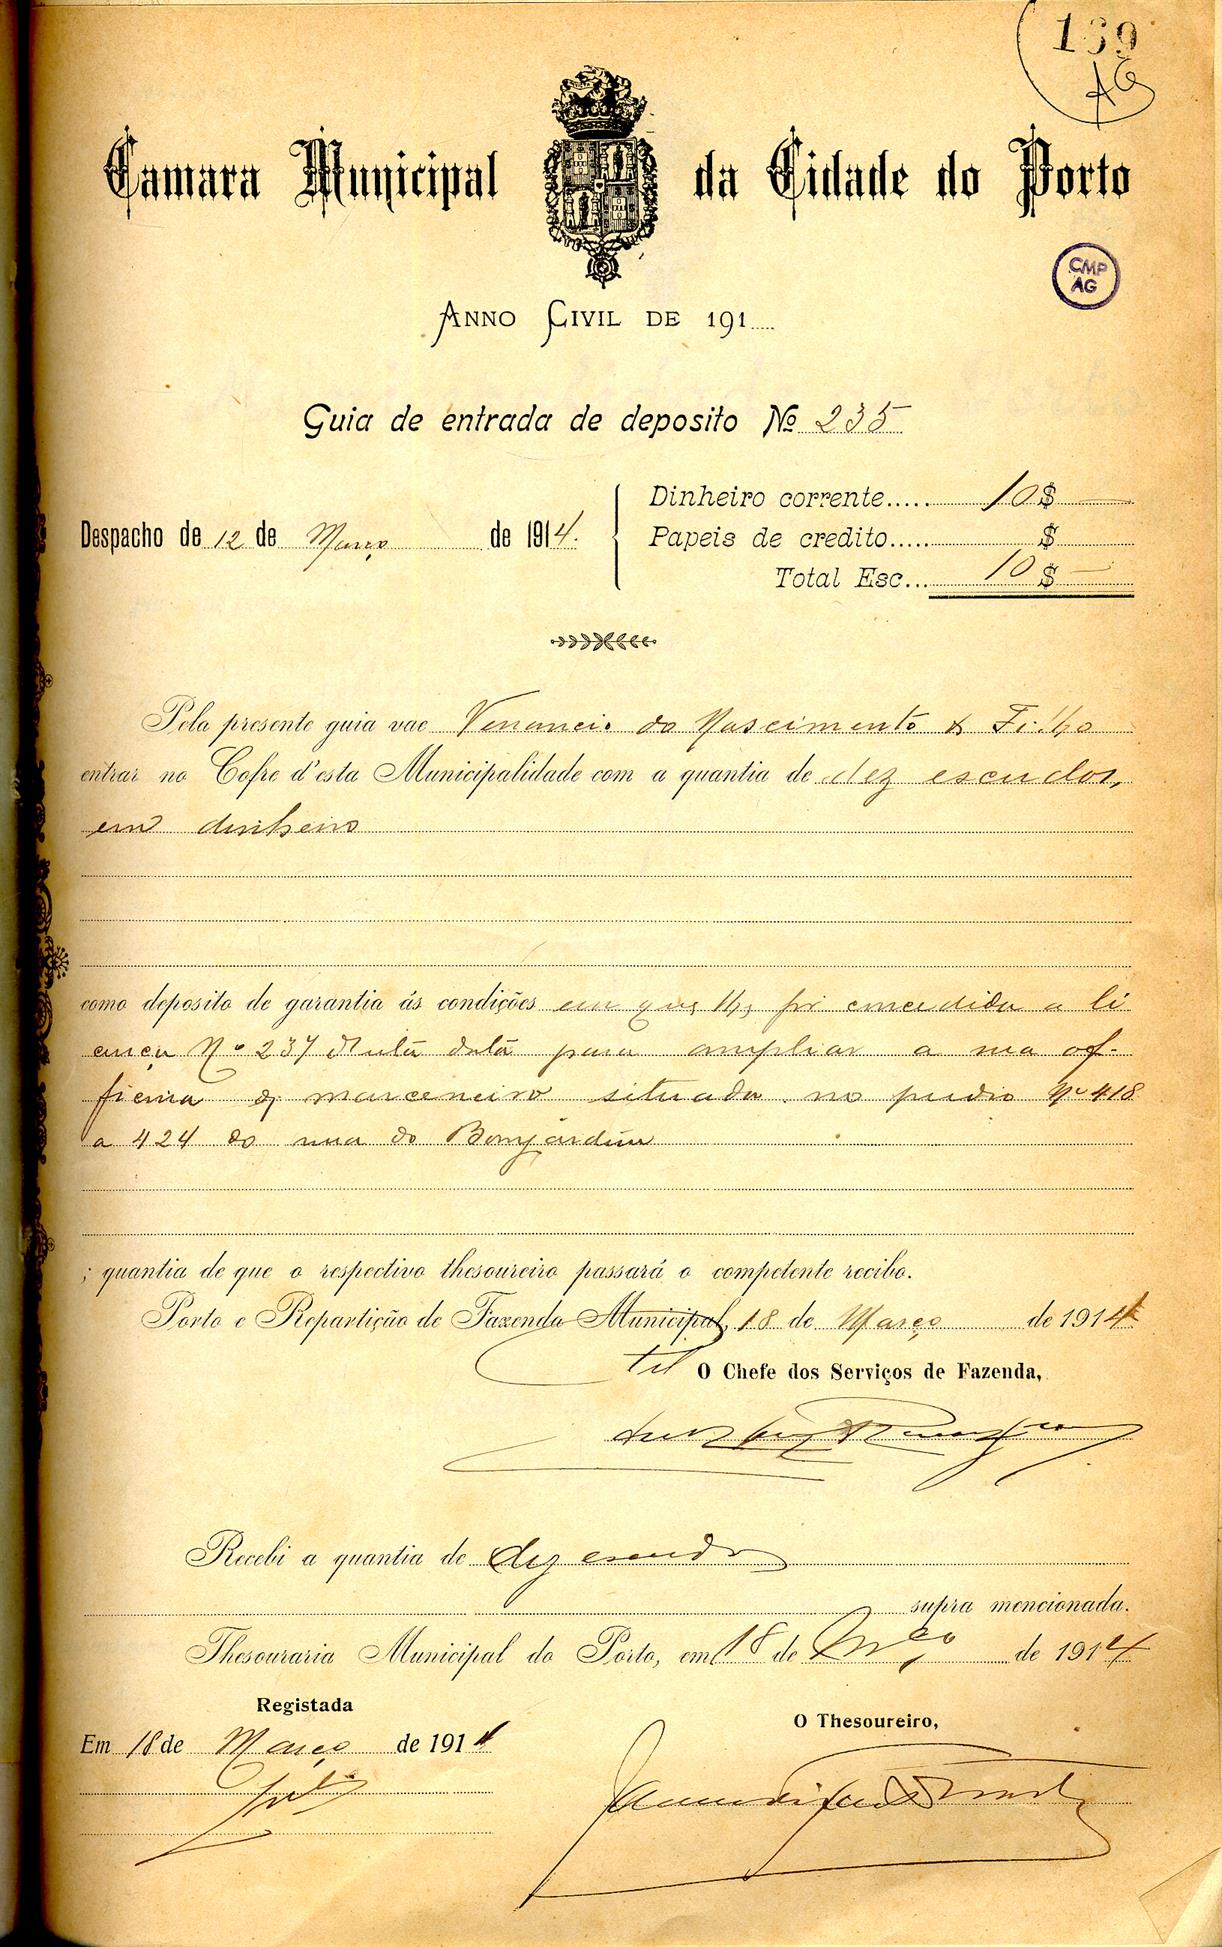 169
AG
Camara Municipal da Cidade do Porto
CMP
AG
Anno Civil de 191
Guia de entrada de deposito Nº 235
Dinheiro corrente..... 10$—
Despacho de 12 de Março de 1914.
Papeis de credito..... $
Total Esc... 10$—
Pela presente guia vae Venancio do Nascimento & Filho
entrar no Cofre d'esta Municipalidade com a quantia de dez escudos,
em dinheiro
como deposito de garantia ás condições em que lhe foi concedida a li
cença Nº 237 d'esta data para ampliar a sua of-
ficina de marceneiro situada no predio Nº 418
a 424 da rua do Bomjardim
; quantia de que o respectivo thesoureiro passará o competente recibo.
Porto e Repartição de Fazenda Municipal, 18 de Março de 1914
O Chefe dos Serviços de Fazenda,
Recebi a quantia de dez escudos
supra mencionada.
Thesouraria Municipal do Porto, em 18 de Mço de 1914
Registada
O Thesoureiro,
Em 18 de Março de 1914